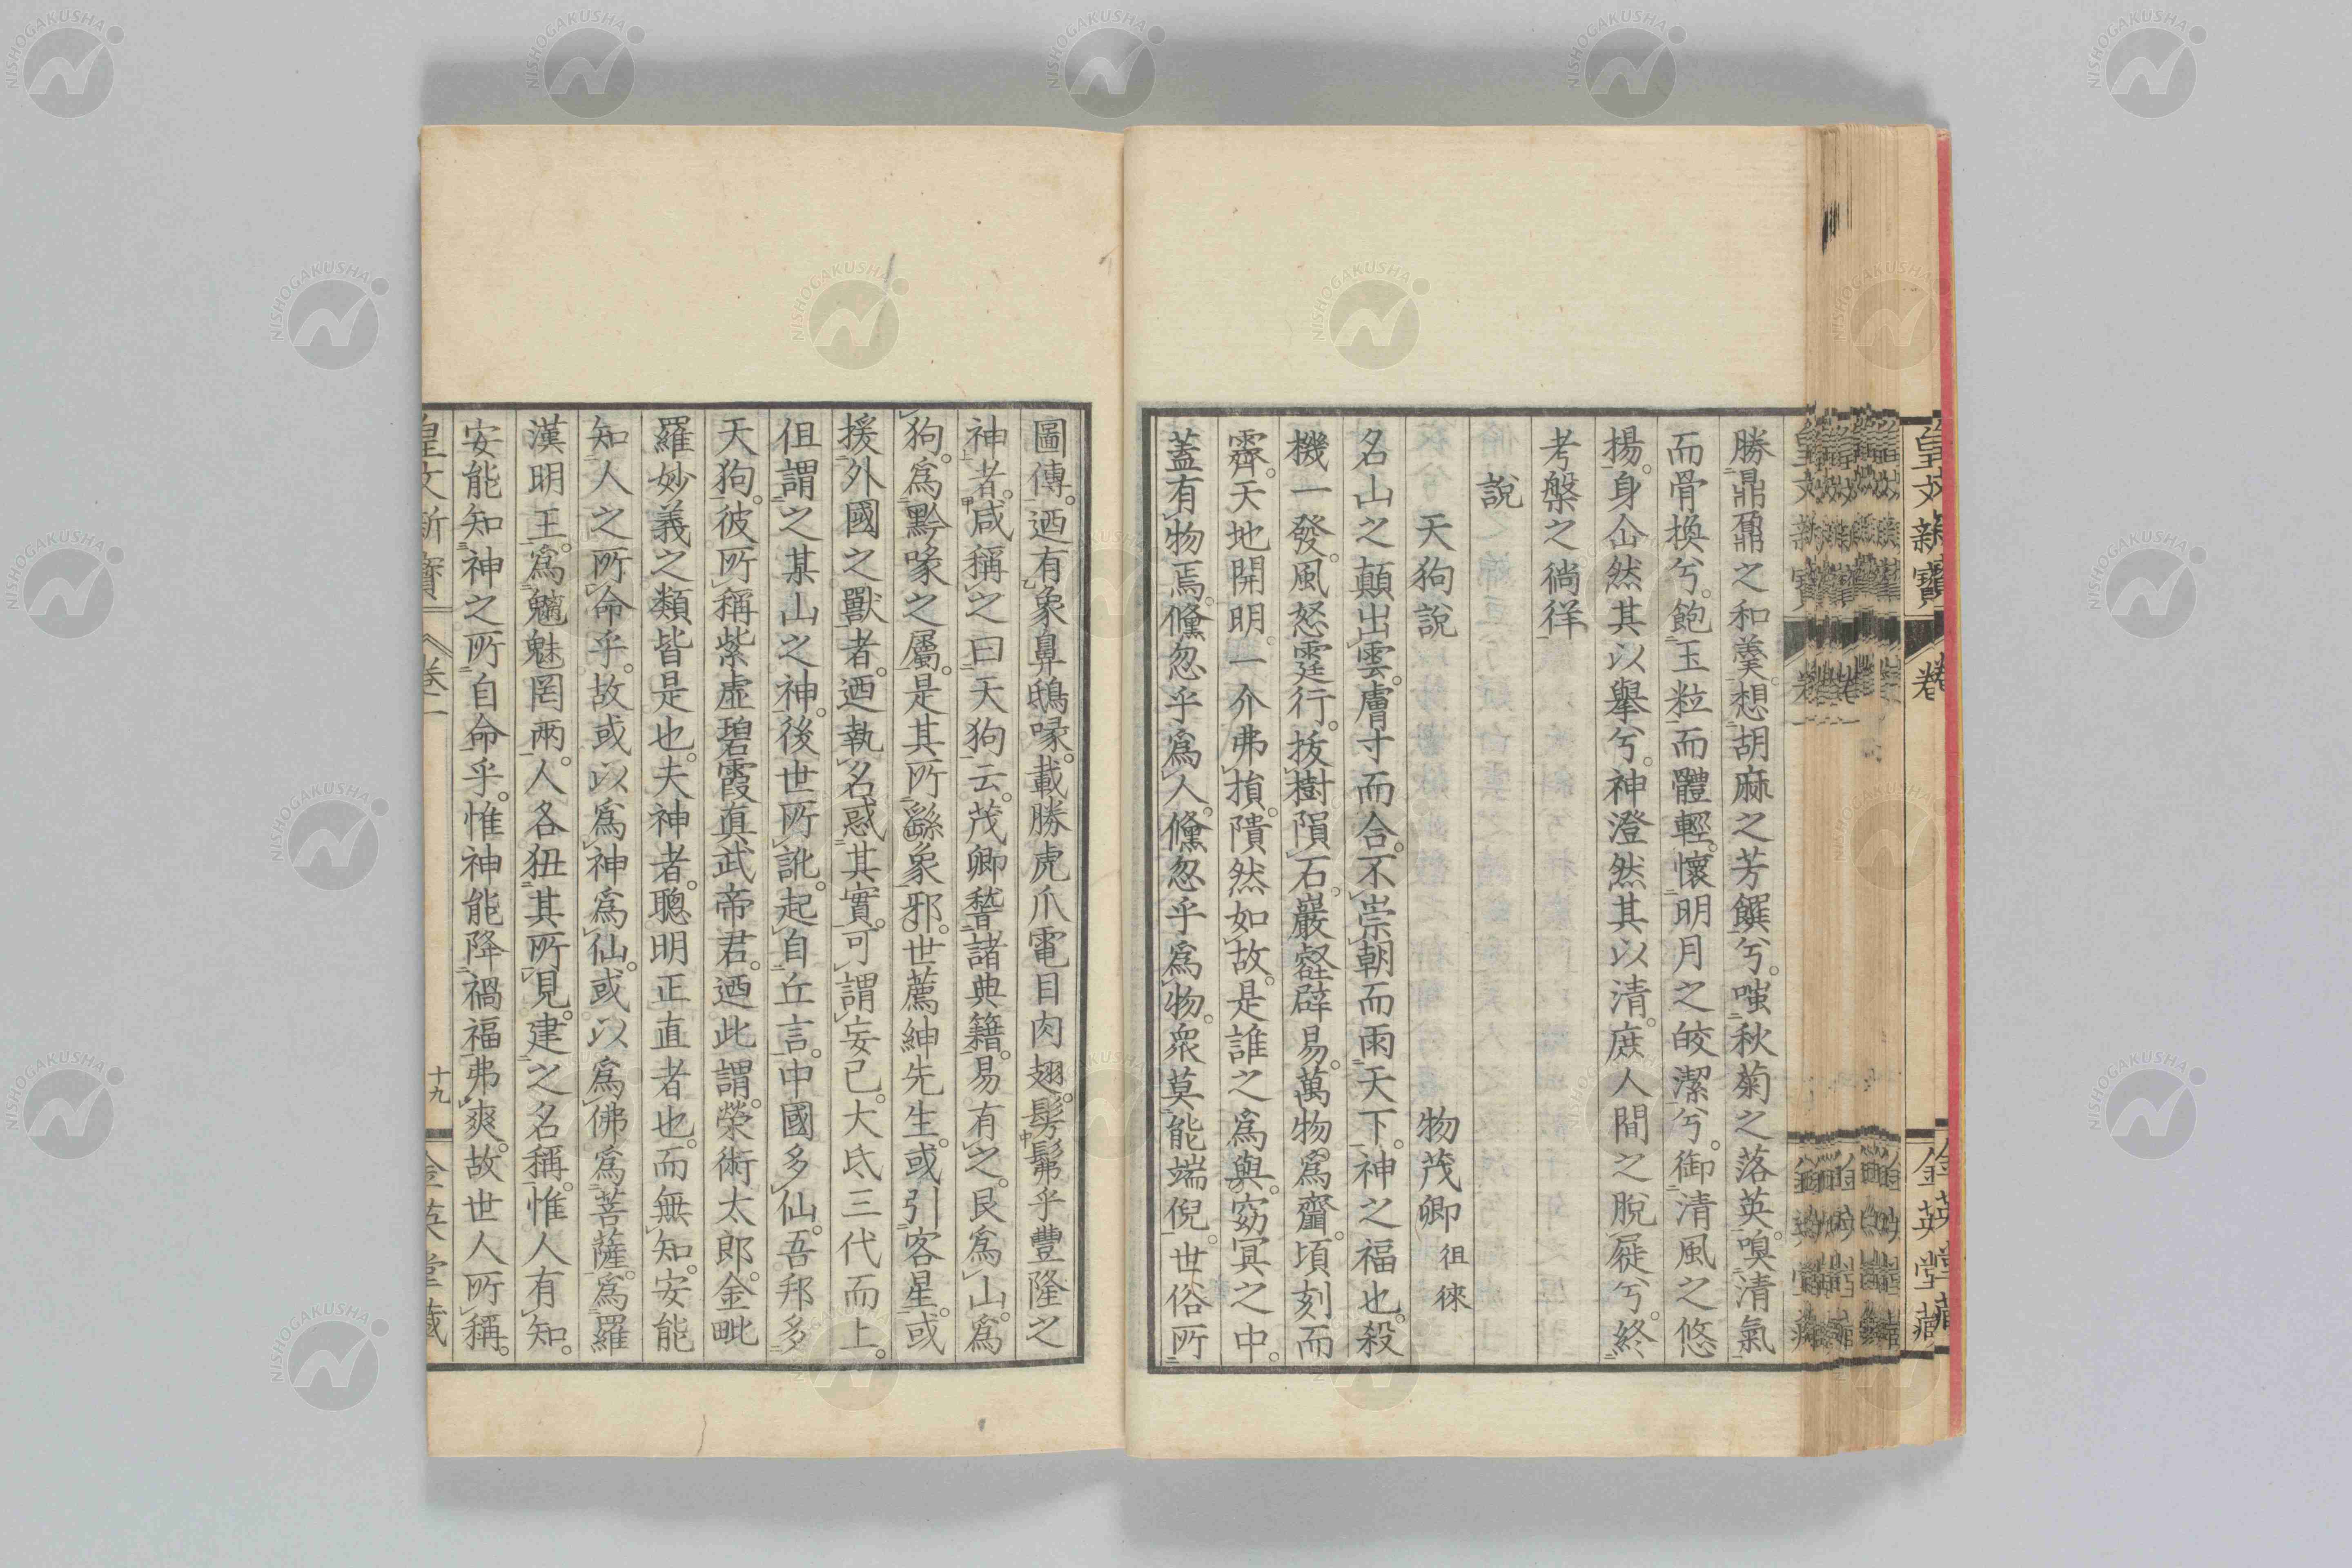 勝鼎鼐之和羹。想胡麻之芳饌兮。嗤秋菊之落英。嗅清氣
而骨換兮。飽玉粒而體輕。懷明月之皎潔兮。御清風之悠
揚。身仚然其以舉兮。神澄然其以清。庶人間之脫屣兮。終
考槃之徜徉
說
天狗說 物茂卿 徂徠
名山之顛出雲。膚寸而合。不崇朝而雨天下。神之福也。殺
機一發。風怒霆行。拔樹隕石。巖壑辟易。萬物爲齏。頃刻而
霽。天地開明。一介弗損。隤然如故。是誰之爲與。窈冥之中。
蓋有物焉。儵忽乎爲人。儵忽乎爲物。衆莫能端倪。世俗所
圖傳。迺有象鼻鴟喙。載勝虎爪電目肉翅。髣髴乎豐隆之
神者。咸稱之曰天狗云。茂卿嘗諸典籍。易有之。艮爲山。爲
狗。爲黔喙之屬。是其所繇象邪。世薦紳先生。或引客星。或
援外國之獸者。迺執名惑其實。可謂妄已。大氐三代而上。
伹謂之某山之神。後世所訛。起自丘言。中國多仙。吾邦多
天狗。彼所稱紫虛碧霞真武帝君。迺此謂榮術太郎。金毗
羅妙義之類皆是也。夫神者。聰明正直者也。而無知。安能
知人之所命乎。故或以爲神爲仙。或以爲佛爲菩薩。爲羅
漢明王。爲魑魅罔兩。人各狃其所見。建之名稱。惟人有知。
安能知神之所自命乎。惟神能降禍福弗爽。故世人所稱。
皇文新寶 卷二 十九 金英堂藏